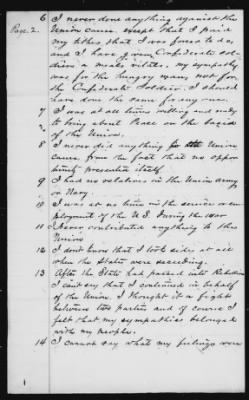 Page 2.
6 I never done anything against the
Union cause except that I paid
my tithes that I was forced to do,
and I have given Confederate sol-
diers a meals vitales. my sympathy
was for the hungry man, not for
the Confederate Soldier. I should
have done the same for any one.
7 I was at all times willing and ready
to bring about Peace on the basis
of the Union.
8 I never did anything for the Union
cause from the fact that no oppor
tunity presented itself
9 I had no relatives in the Union army
or Navy.
10 I was at no time in the service or em-
ployment of the U.S. during the war
11 I never contributed anything to this
Union
12 I don't know that I took sides at all
when the States were seceding.
13 After the State had passed into Rebellion
I can't say that I continued in behalf
of the Union. I thought it a fight
between two parties and of course I
felt that my sympathies belonged
with my people.
14 I cannot say what my feelings were
1